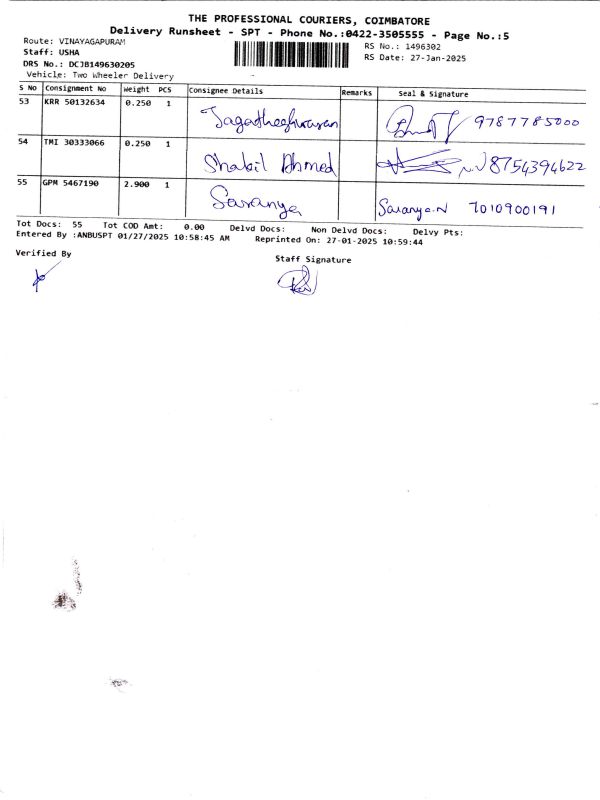 THE PROFESSIONAL COURIERS, COIMBATORE
Delivery Runsheet - SPT - Phone No.:0422-3505555 - Page No.:5
Route: VINAYAGAPURAM
RS No.: 1496302
Staff: USHA
RS Date: 27-Jan-2025
DRS No.: DCJB149630205
Vehicle: Two Wheeler Delivery
S No Consignment No Weight PCS Consignee Details Remarks Seal & Signature
53 KRR 50132634 0.250 1 9787785000
54 TMI 30333066 0.250 1 Shakil Ahmed 8754394622
55 GPM 5467190 2.900 1 Saranya Saranya.N 7010900191
Tot Docs: 55 Tot COD Amt: 0.00 Delvd Docs: Non Delvd Docs: Delvy Pts:
Entered By :ANBUSPT 01/27/2025 10:58:45 AM Reprinted On: 27-01-2025 10:59:44
Verified By
Staff Signature